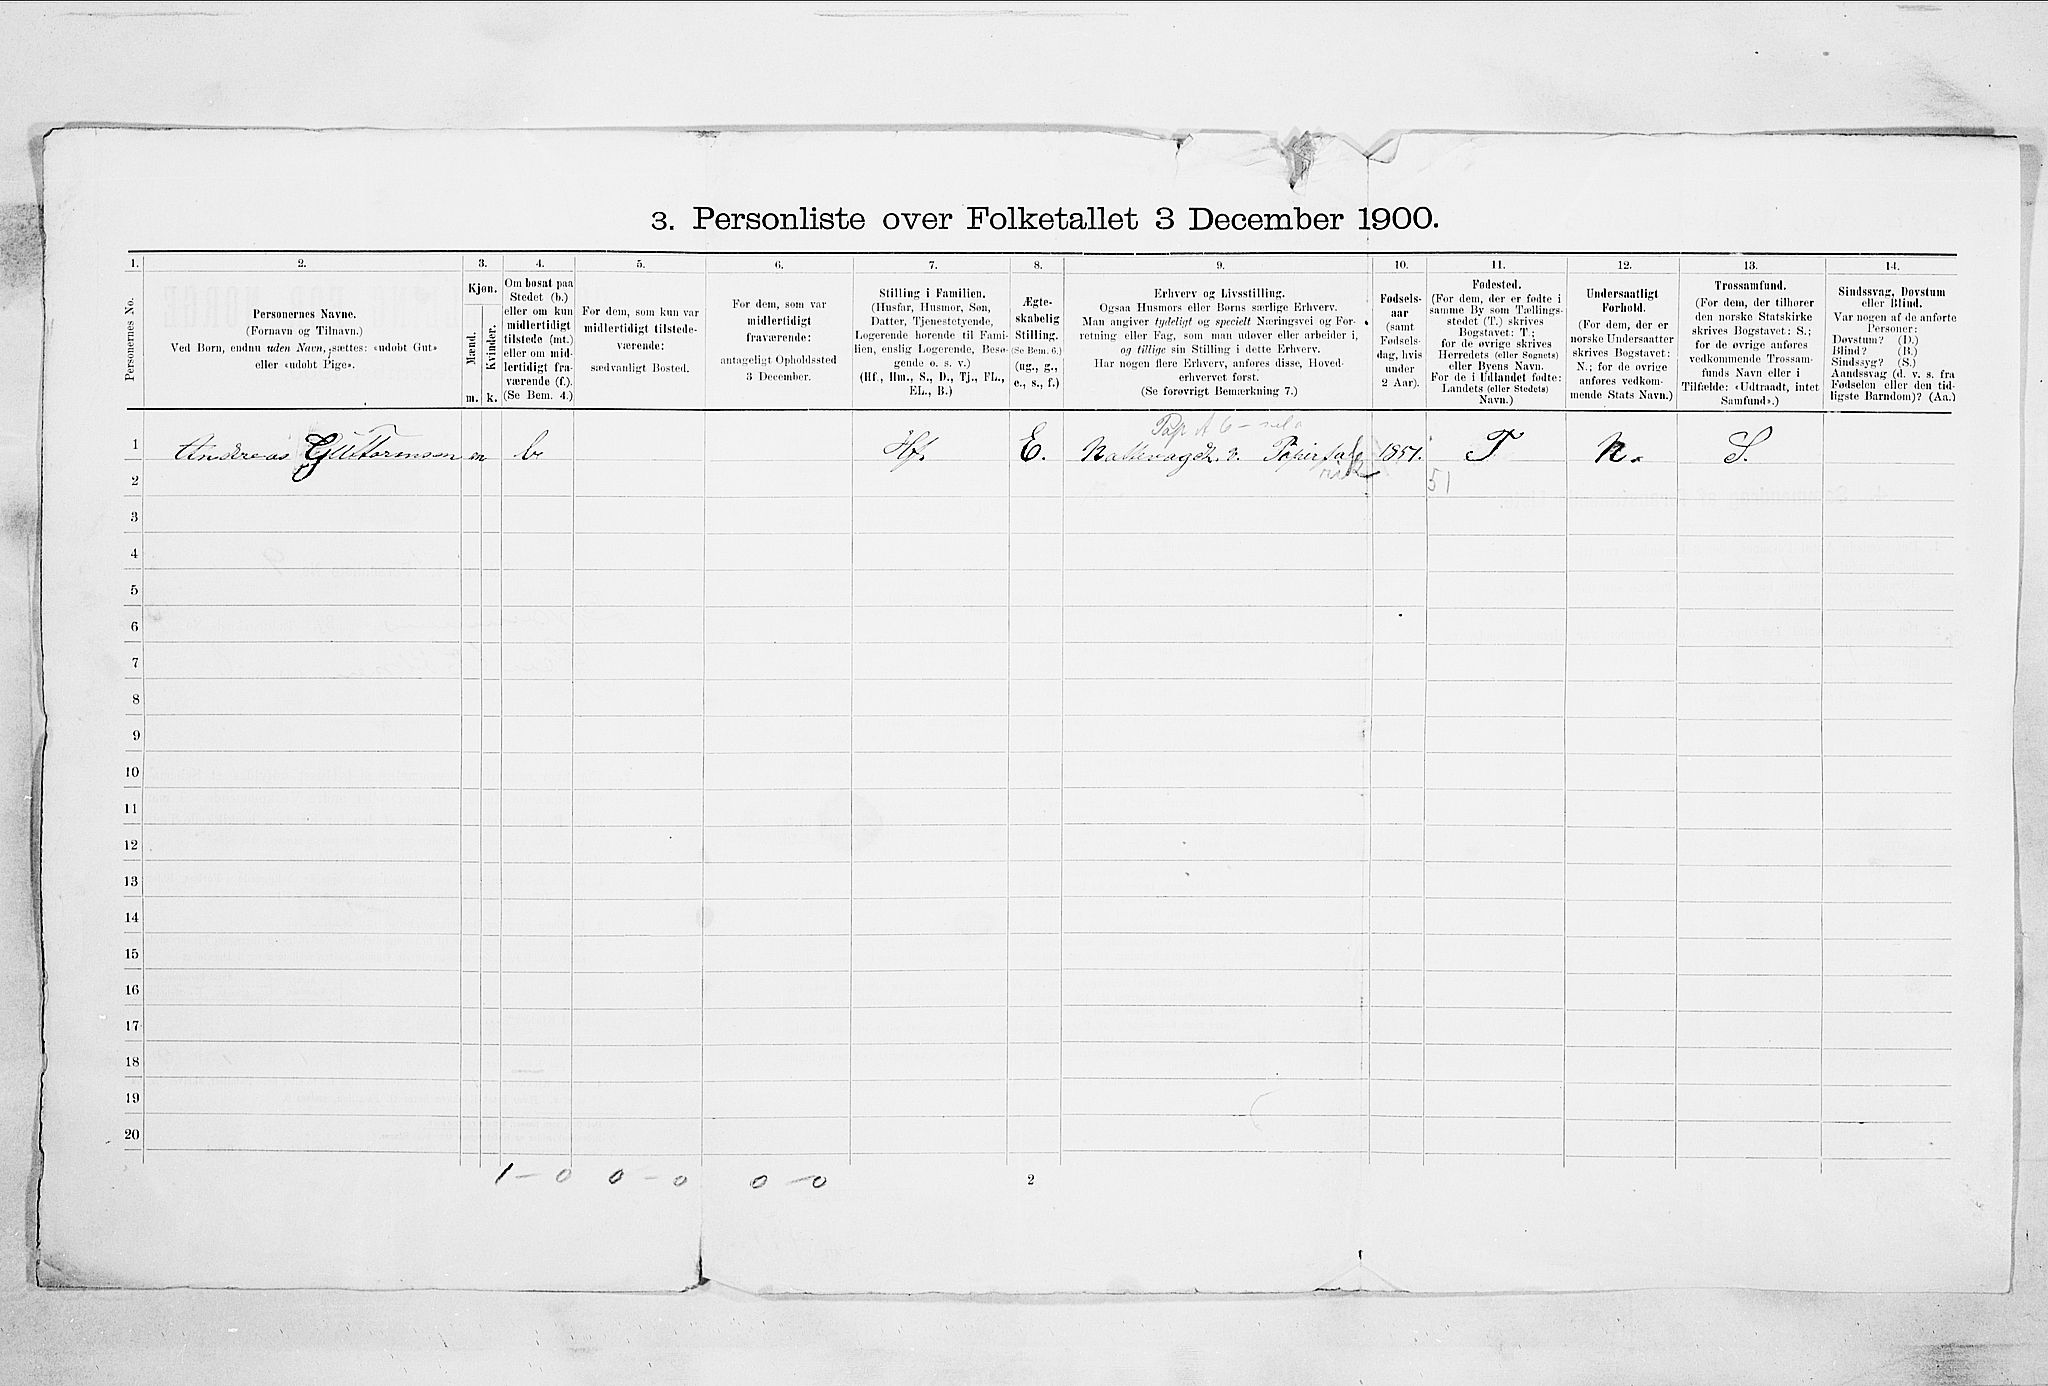 3. Personliste over Folketallet 3 December 1900.
1.
Personernes No.
2.
Personernes Navne.
(Fornavn og Tilnavn.)
Ved Børn, endnu uden Navn, sættes: «udøbt Gut»
eller «udøbt Pige».
3.
Kjøn.
Mænd.
Kvinder.
m. k.
4.
Om bosat paa
Stedet (b.)
eller om kun
midlertidigt
tilstede (mt.)
eller om mid-
lertidigt fra-
værende (f.).
(Se Bem. 4.)
5.
For dem, som kun var
midlertidigt tilstede-
værende:
sædvanligt Bosted.
6.
For dem, som var
midlertidigt
fraværende:
antageligt Opholdssted
3 December.
7.
Stilling i Familien.
(Husfar, Husmor, Søn,
Datter, Tjenestetyende,
Logerende hørende til Fami-
lien, enslig Logerende, Besø-
gende o. s. v.)
(Hf., Hm., S., D., Tj., FL.,
EL., B.)
8.
Ægte-
skabelig
Stilling.
(Se Bem. 6.)
(ug., g.,
e., s., f.)
9.
Erhverv og Livsstilling.
Ogsaa Husmors eller Børns særlige Erhverv.
Man angiver tydeligt og specielt Næringsvei og For-
retning eller Fag, som man udøver eller arbeider i,
og tillige sin Stilling i dette Erhverv.
Har nogen flere Erhverv, anføres disse, Hoved-
erhvervet først.
(Se forøvrigt Bemærkning 7.)
10.
Fødsels-
aar
(samt
Fødsels-
dag, hvis
under
2 Aar).
11.
Fødested.
(For dem, der er fødte i
samme By som Tællings-
stedet (T.) skrives
Bogstavet: T;
for de øvrige skrives
Herredets (eller Sognets)
eller Byens Navn.
For de i Udlandet fødte:
Landets (eller Stedets)
Navn.)
12.
Undersaatligt
Forhold.
(For dem, der er
norske Undersaatter
skrives Bogstavet:
N.; for de øvrige
anføres vedkom-
mende Stats Navn.)
13.
Trossamfund.
(For dem, der tilhører
den norske Statskirke
skrives Bogstavet: S.;
for de øvrige anføres
vedkommende Trossam-
funds Navn eller i
Tilfælde: «Udtraadt, intet
Samfund».)
14.
Sindssvag, Døvstum
eller Blind.
Var nogen af de anførte
Personer:
Døvstum? (D.)
Blind? (B.)
Sindssyg? (S.)
Aandssvag (d. v. s. fra
Fødselen eller den tid-
ligste Barndom)? (Aa.)
1 Andreas Guttormsen m b. Hf. E. 1851. T. N. S.
51
2
3
4
5
6
7
8
9
10
11
12
13
14
15
16
17
18
19
20
1 - 0 0 - 0 0 - 0
2